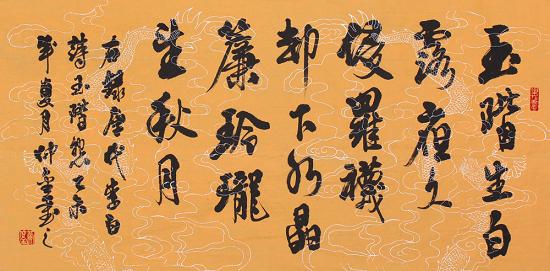 玉階生白
露夜久
侵羅襪
却下水晶
簾玲瓏
望秋月
右錄唐代李白
詩玉階怨乙未
年夏月